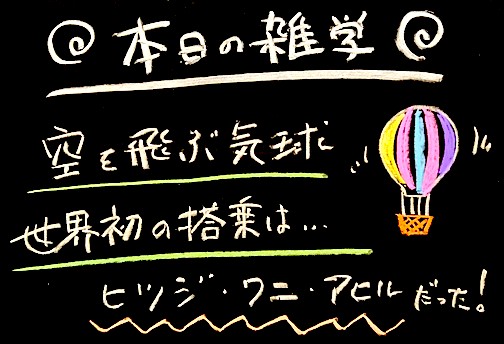 本日の雑学
空を飛ぶ気球
世界初の搭乗は…
ヒツジ・ワニ・アヒルだった!